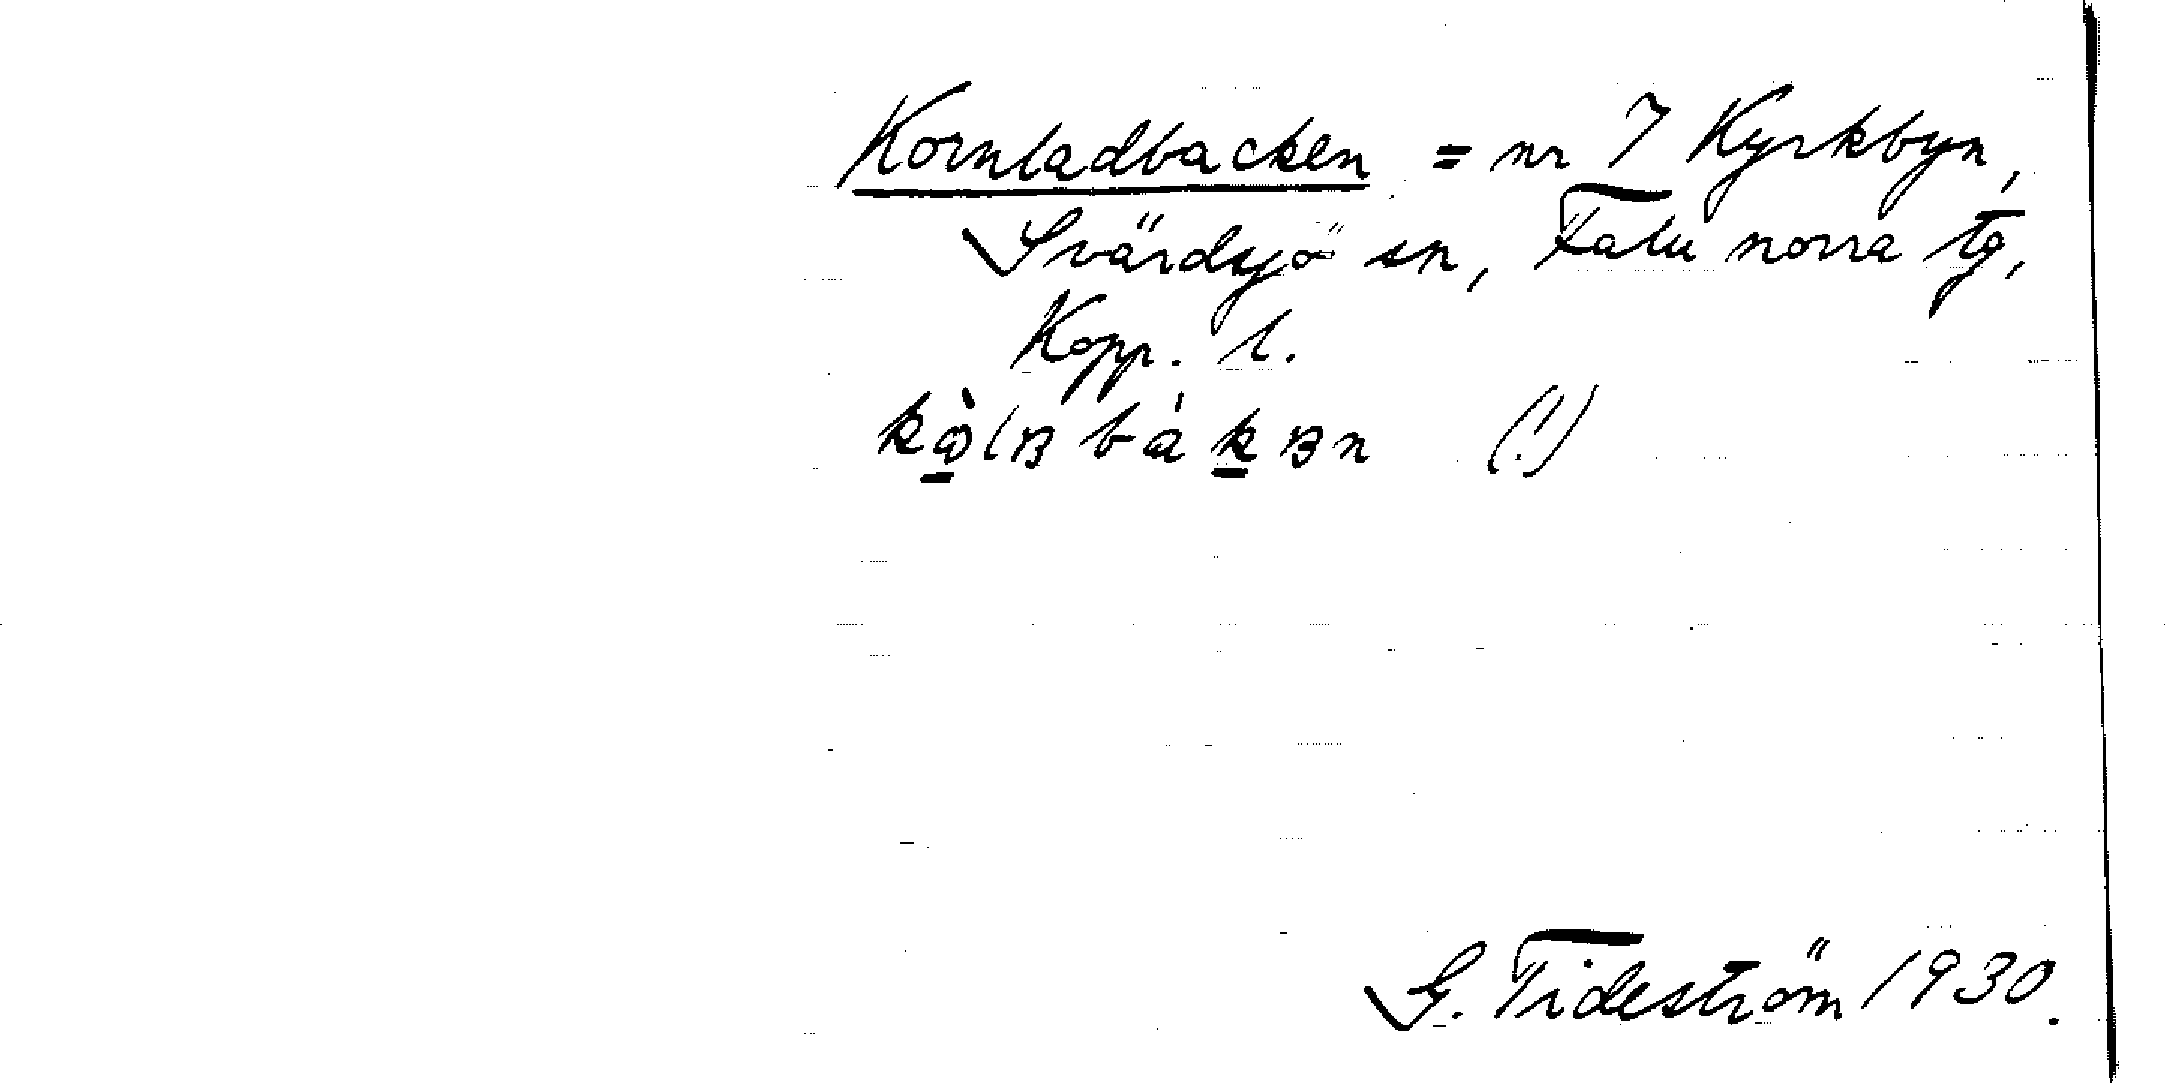 Kornladbacken = nr 7 Kyrkbyn,
Svärdsjö sn, Falu norra tg,
Kopp. l.
(!)
G. Tideström 1930.